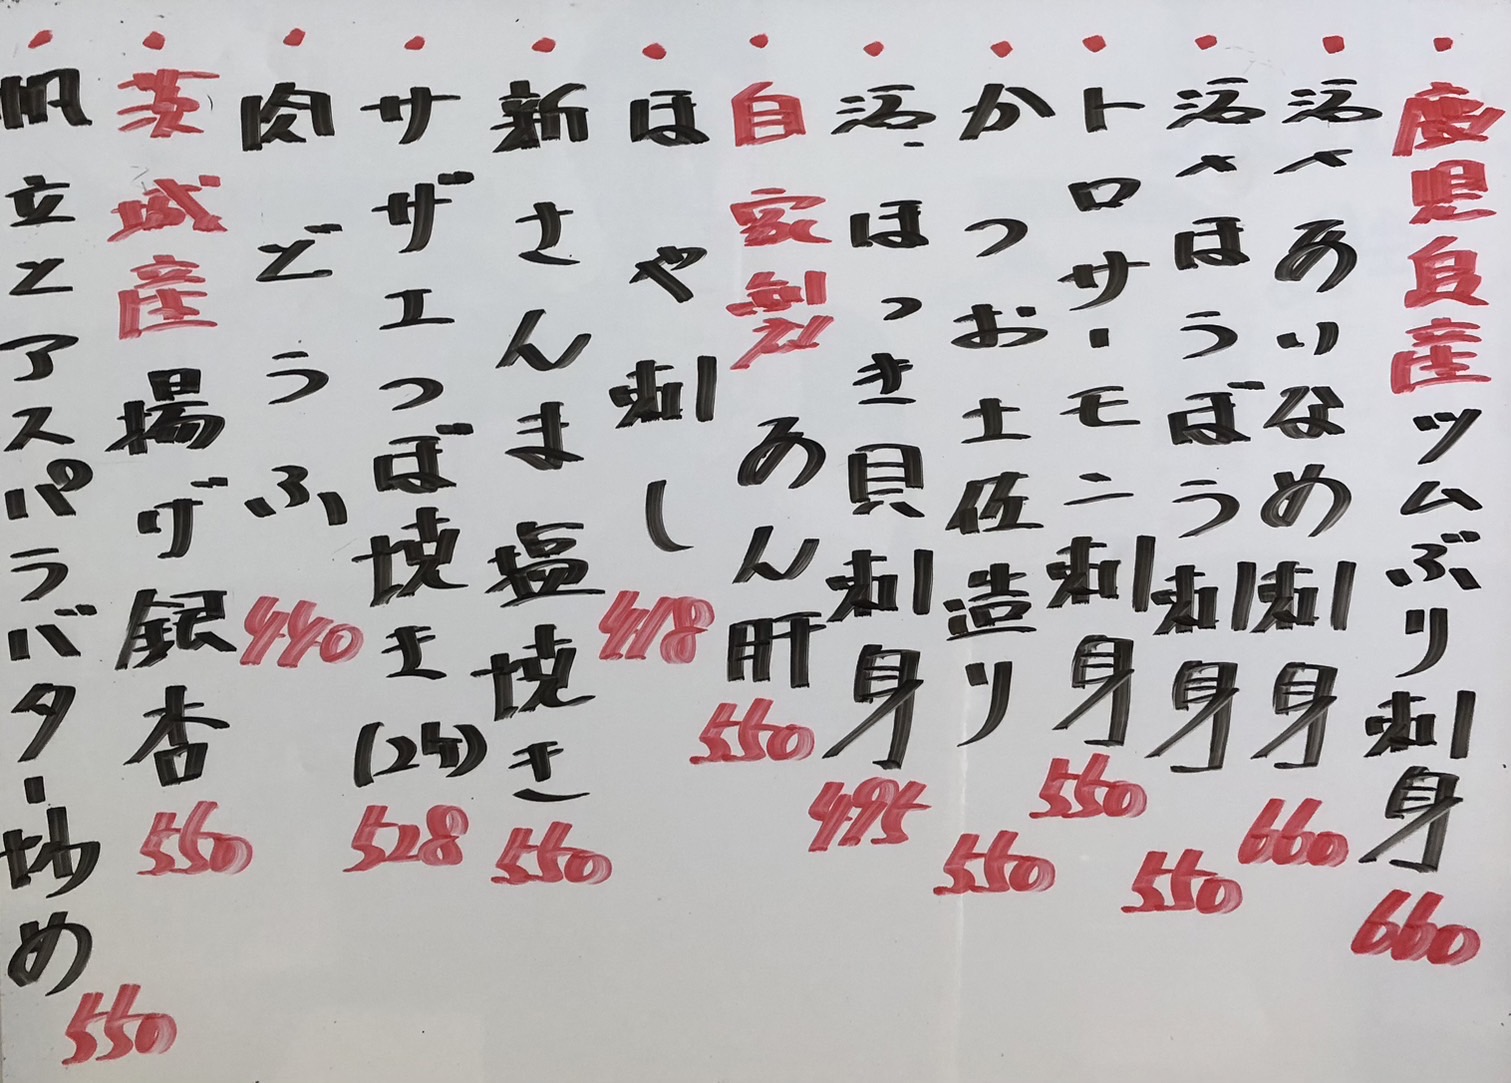 ・鹿児島産ツムぶり刺身 660
・活〆あいなめ刺身 660
・活〆ほうぼう刺身 550
・トロサーモン刺身 550
・かつお土佐造り 550
・活ほっき貝刺身 495
・自家製あん肝 550
・ほや刺し 418
・新さんま塩焼き 550
・サザエつぼ焼き(2ケ) 528
・肉どうふ 440
・茨城産揚げ銀杏 550
・帆立とアスパラバター炒め 550